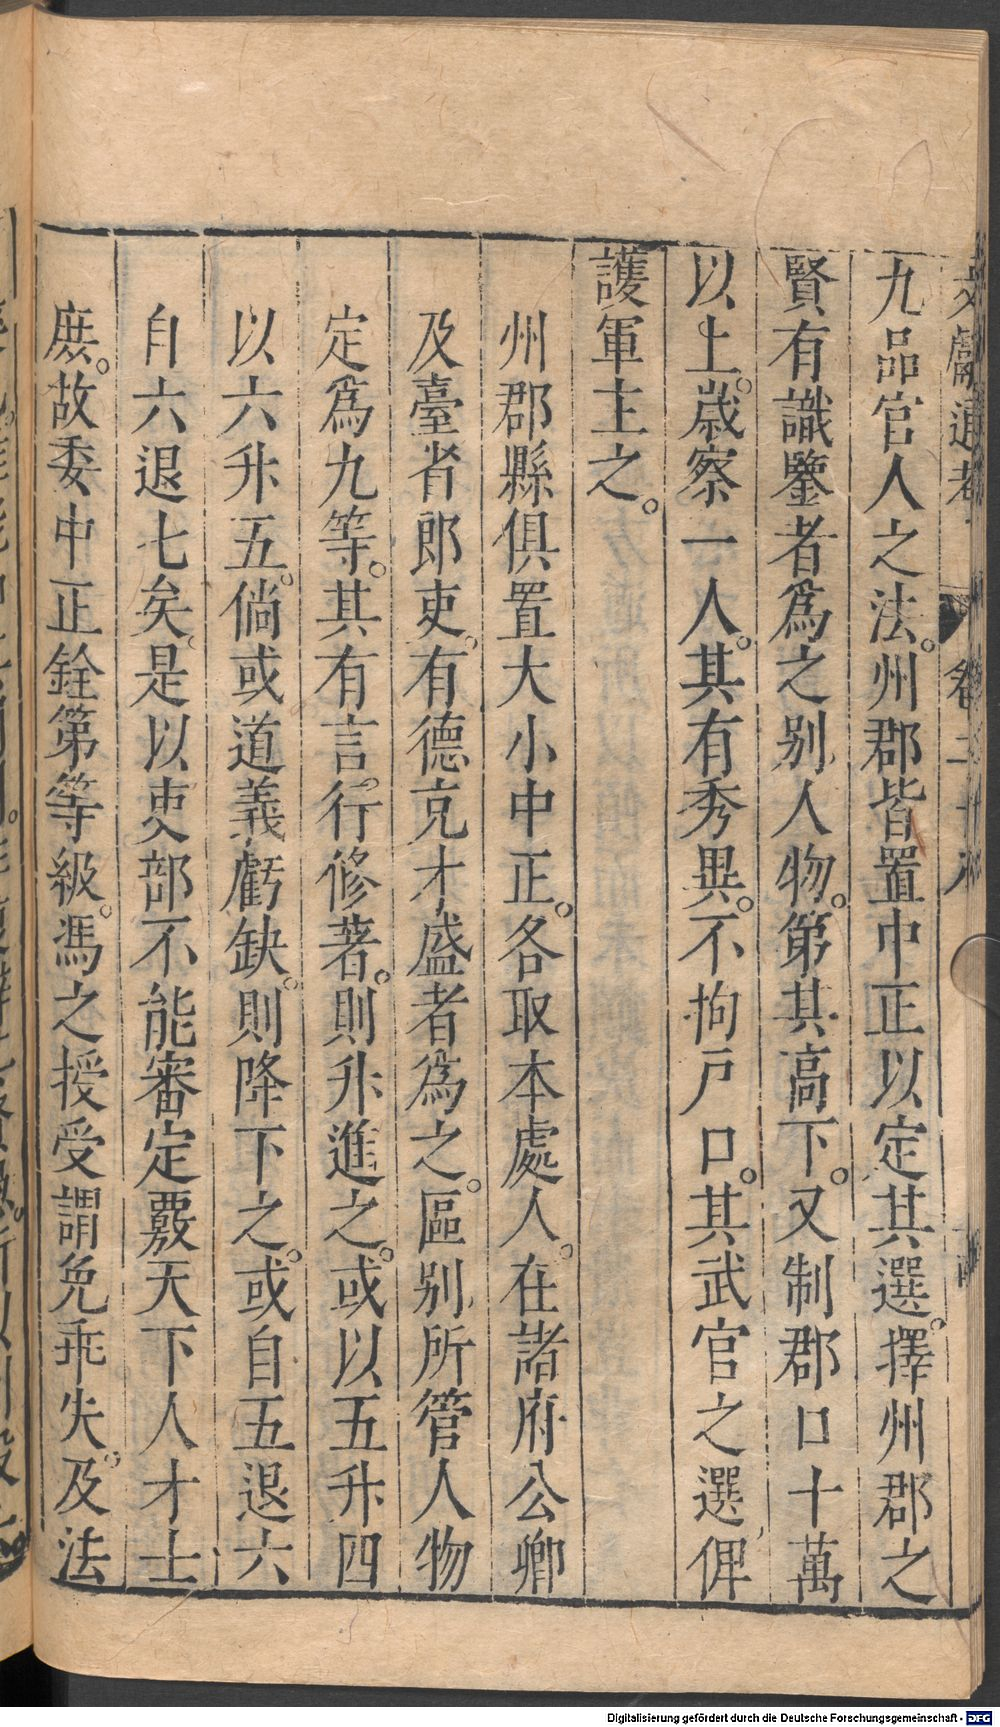 文獻通考 卷二十八
九品官人之法。州郡皆置中正以定其選。擇州郡之
賢有識鑒者爲之别人物。第其高下。又制郡口十萬
以上。歳察一人。其有秀異。不拘戸口。其武官之選俾
護軍主之。
州郡縣俱置大小中正。各取本處人。在諸府公卿
及臺省郎吏。有德充才盛者爲之。區别所管人物
定爲九等。其有言行修著。則升進之。或以五升四
以六升五。倘或道義虧缺。則降下之。或自五退六
自六退七矣。是以吏部不能審定覈天下人才士
庶。故委中正銓第等級。馮之授受謂免乖失。及法
Digitalisierung gefördert durch die Deutsche Forschungsgemeinschaft - DFG